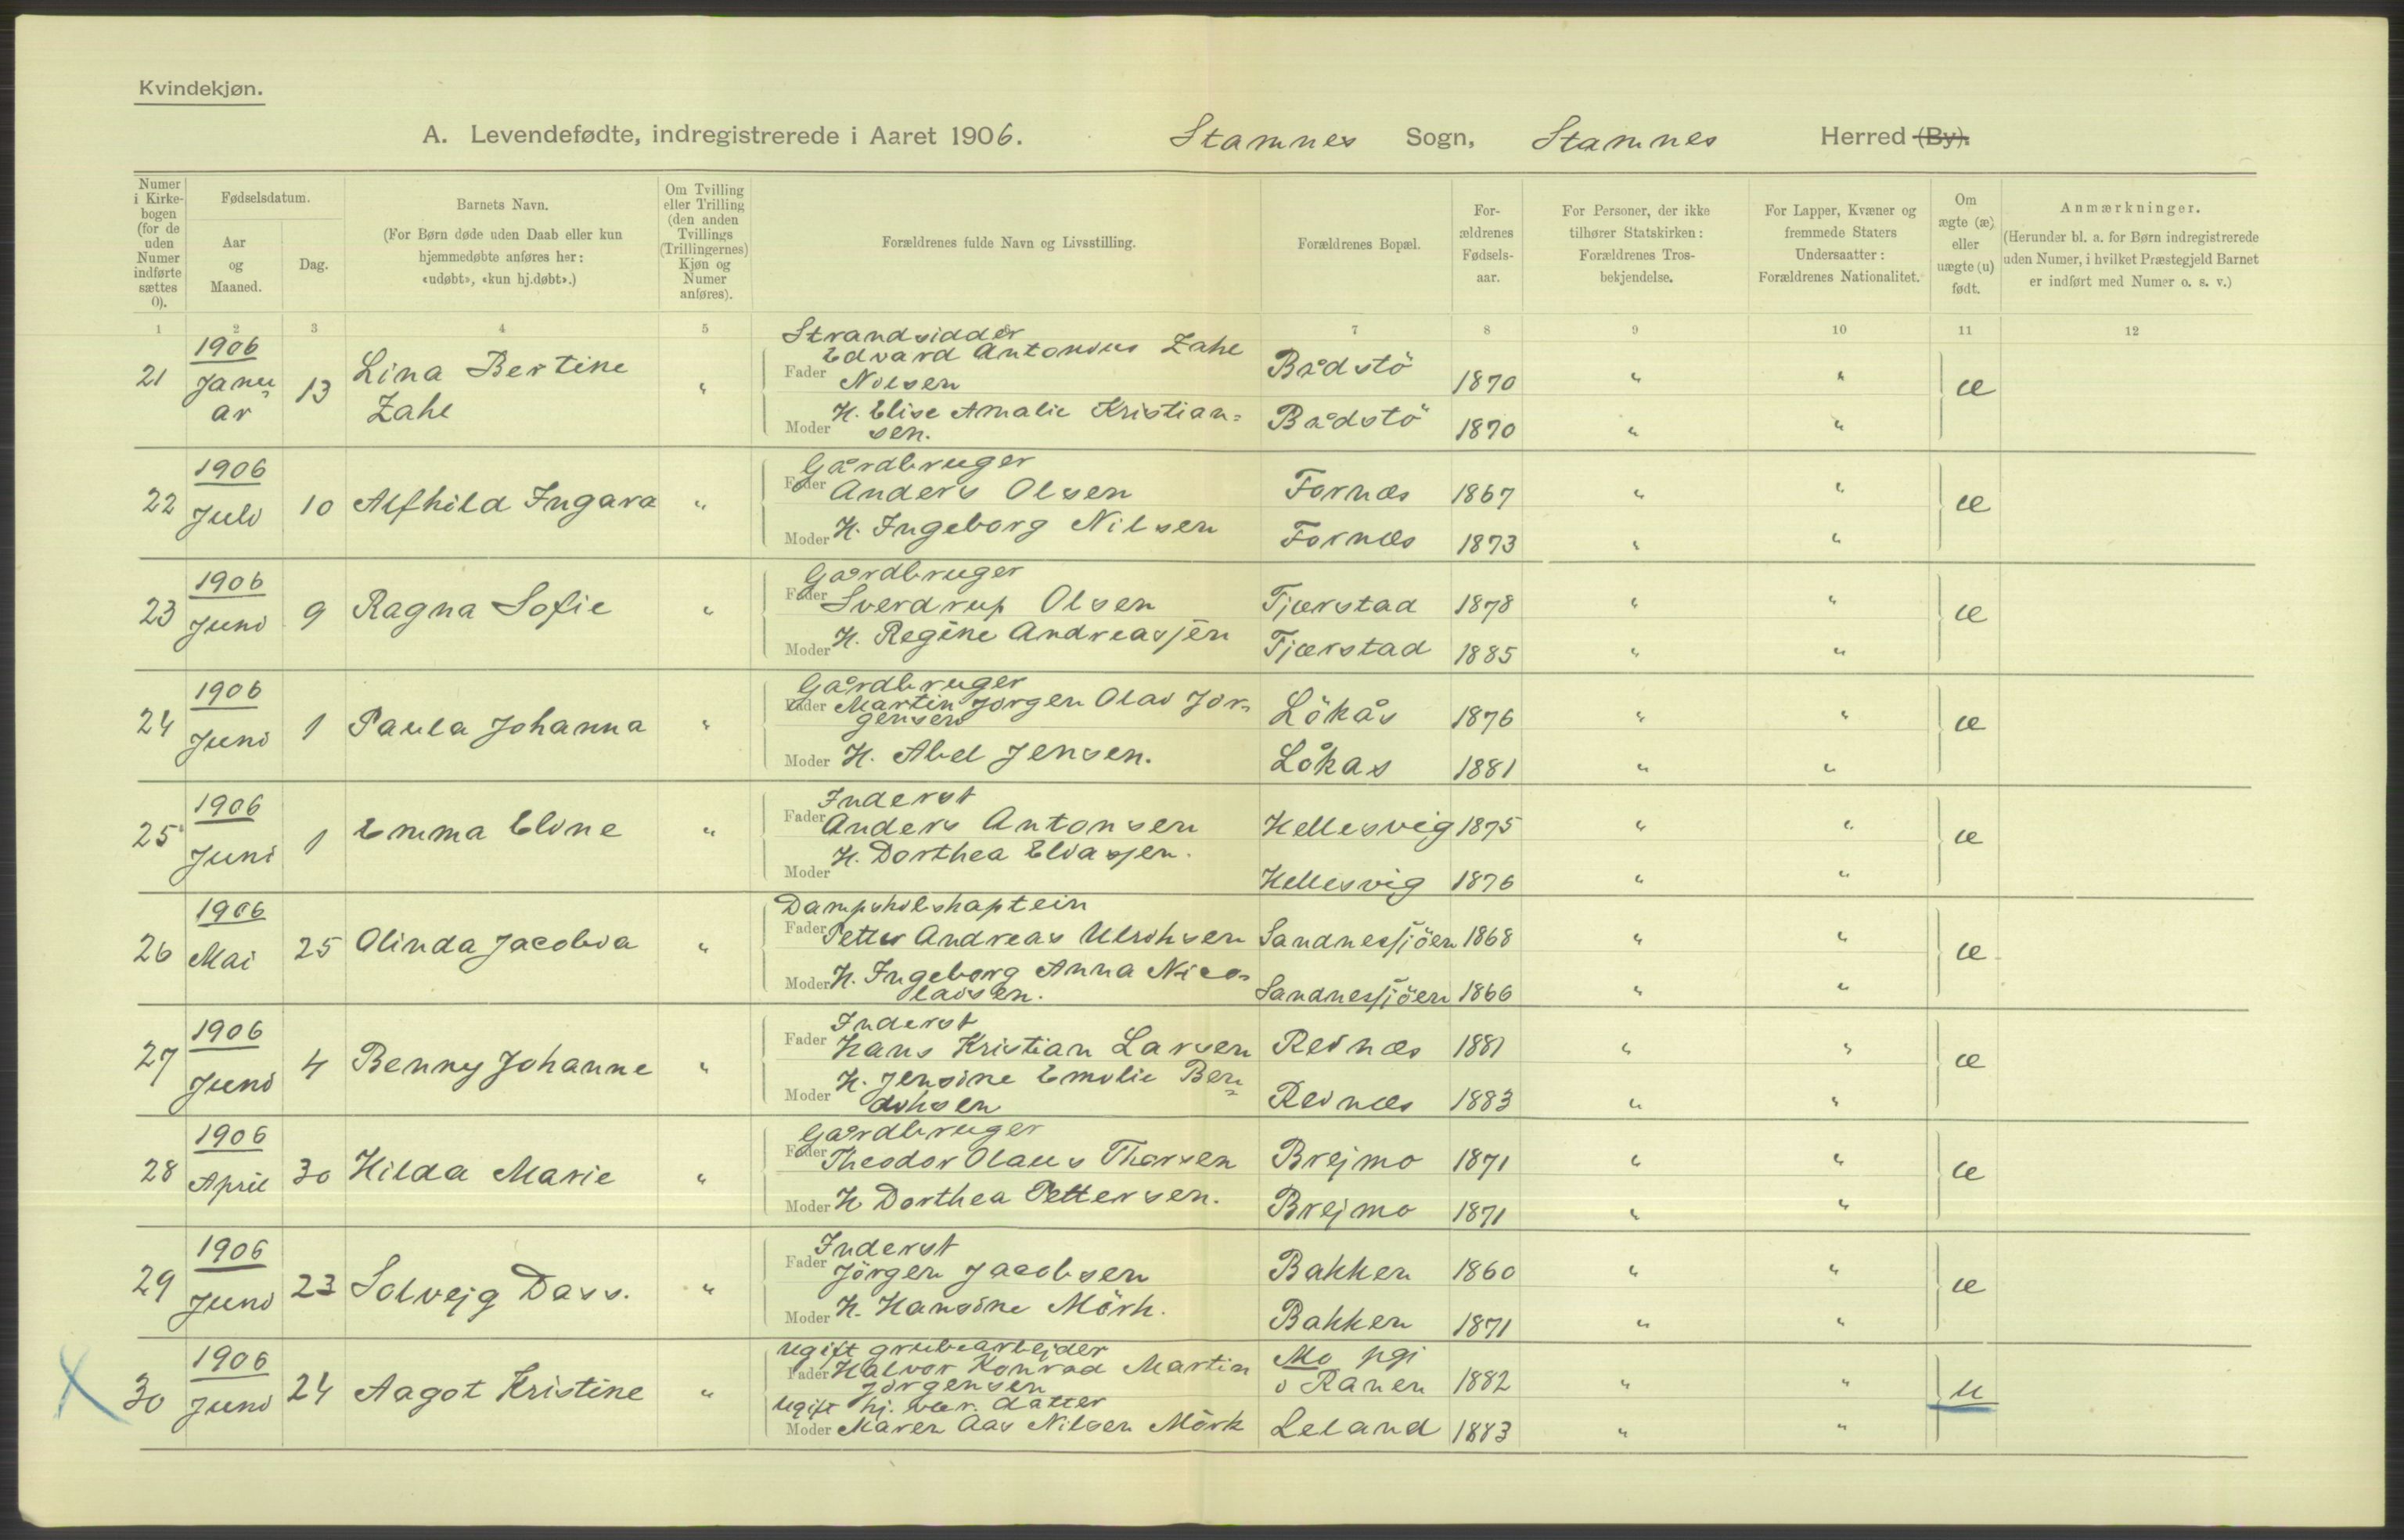 Kvindekjøn.
A. Levendefødte, indregistrerede i Aaret 1906. Stamnes Sogn, Stamnes Herred (By).
Numer i Kirkebogen (for de uden Numer indførte sættes 0).
Fødselsdatum.
Aar og Maaned.
Dag.
Barnets Navn.
(For Børn døde uden Daab eller kun hjemmedøbte anføres her: «udøbt», «kun hj.døbt».)
Om Tvilling eller Trilling (den anden Tvillings (Trillingernes) Kjøn og Numer anføres).
Forældrenes fulde Navn og Livsstilling.
Forældrenes Bopæl.
Forældrenes Fødselsaar.
For Personer, der ikke tilhører Statskirken: Forældrenes Trosbekjendelse.
For Lapper, Kvæner og fremmede Staters Undersaatter: Forældrenes Nationalitet.
Om ægte (æ) eller uægte (u) født.
Anmærkninger.
(Herunder bl. a. for Børn indregistrerede uden Numer, i hvilket Præstegjeld Barnet er indført med Numer o. s. v.)
1 2 3 4 5 7 8 9 10 11 12
21 1906 Januar 13 Lina Bertine Zahl "
Strandsidder
Fader Edvard Antonius Zahl Nilsen Brådstö 1870 " " æ
Moder H. Elise Amalie Kristiansen. Brådstö 1870 " "
22 1906 Juli 10 Alfhild Ingara "
Gårdbruger
Fader Anders Olsen Fornæs 1867 " " æ
Moder H. Ingeborg Nilsen Fornæs 1873 " "
23 1906 Juni 9 Ragna Sofie "
Gårdbruger
Fader Sverdrup Olsen Tjærstad 1878 " " æ
Moder H. Regine Andreassen Tjærstad 1885 " "
24 1906 Juni 1 Paula Johanna "
Gårdbruger
Fader Martin Jörgen Olai Jörgensen Lökås 1876 " " æ
Moder H. Abel Jensen. Lökås 1881 " "
25 1906 Juni 1 Emma Eline "
Inderst
Fader Anders Antonsen Hellesvig 1875 " " æ
Moder H. Dorthea Eliassen. Hellesvig 1876 " "
26 1906 Mai 25 Olinda Jacobia "
Dampskibskaptein
Fader Petter Andreas Ulriksen Sandnessjöen 1868 " " æ
Moder H. Ingeborg Anna Nicolaisen. Sandnessjöen 1866 " "
27 1906 Juni 4 Benny Johanne "
Inderst
Fader Hans Kristian Larsen Reinæs 1881 " " æ
Moder H. Jensine Emilie Bendiksen Reinæs 1883 " "
28 1906 April 30 Hilda Marie "
Gårdbruger
Fader Theodor Olaus Thorsen Brejmo 1871 " " æ
Moder H Dorthea Pettersen. Brejmo 1871 " "
29 1906 Juni 23 Solvejg Dass. "
Inderst
Fader Jörgen Jacobsen Bakken 1860 " " æ
Moder H. Hansine Mörk. Bakken 1871 " "
X 30 1906 Juni 24 Aagot Kristine "
Ugift grubearbejder
Fader Halvor Konrad Martin Jörgensen Mo pgj i Ranen 1882 " " u
Ugift hj. vær. datter
Moder Maren Aas Nilsen Mörk Leland 1883 " "